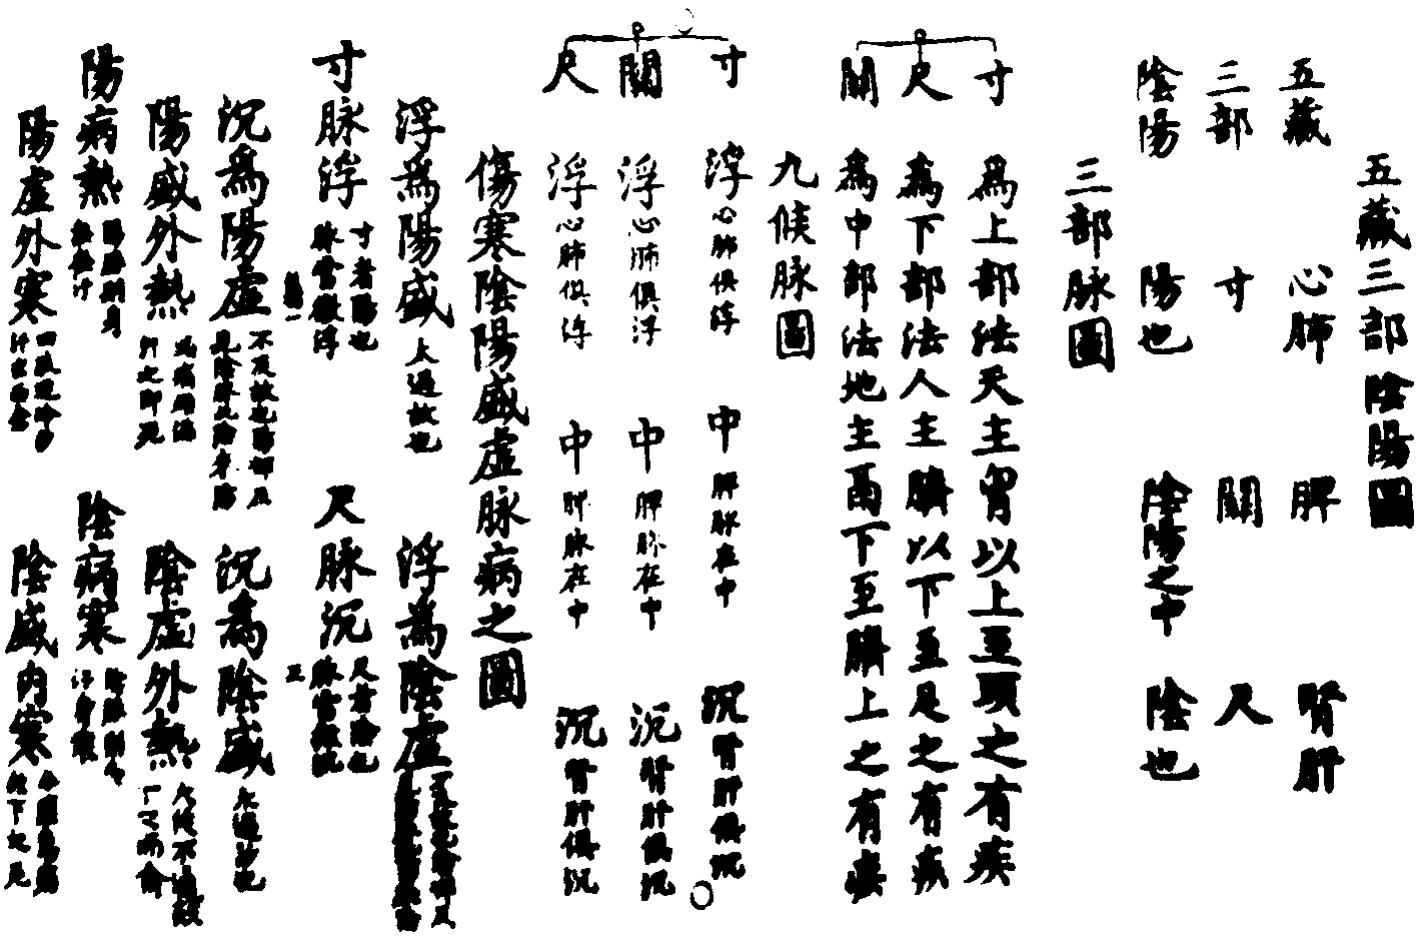 五藏三部陰陽圖
五藏 心肺 脾 腎肝
三部 寸 關 尺
陰陽 陽也 陰陽之中 陰也
三部脉圖
寸 爲上部法天主胷以上至頭之有疾
尺 爲下部法人主臍以下至足之有疾
關 爲中部法地主鬲下至臍上之有疾
九候脉圖
寸 浮心肺俱浮 中脾脉在中 沉腎肝俱沉
關 浮心肺俱浮 中脾脉在中 沉腎肝俱沉
尺 浮心肺俱浮 中脾脉在中 沉腎肝俱沉
傷寒陰陽盛虛脉病之圖
浮爲陽盛 太過故也 浮爲陰虛
寸脉浮 寸者陽也 脉當微浮 尺脉沉 尺者陰也 脉當微沉
沉爲陽虛 不及故也 沉爲陰盛 太過故也
陽盛外熱 陰虛外熱
陽病熱 陰病寒
陽虛外寒 陰盛内寒